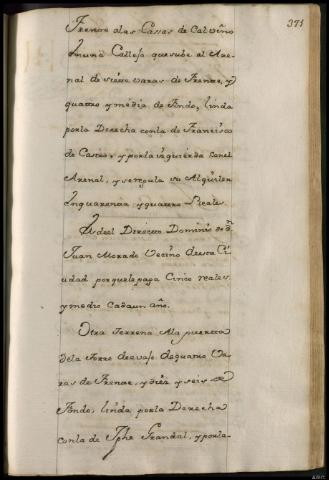 373
Frenteo alas Cassas de Calviño
Enuna Callesa quesube al Are-
nal de siete varas de Frente, y
quattro y media de Fondo, linda
porla Derecha conla de Francisco
de Castro, y porla izquierda conel
Arenal, y se regula su Alquiler
Enquarenta y quattro Reales.
Es del Directto Dominio de Dn
Juan Morado Vecino de esta Ciu
udad porque le paga Cinco reales
y medio Cadaun año.
Otra Terrena Ala puertta
dela Torre de
ras de Frente, y diez y seis de
Fondo, linda porla Derecha
conla de Jphe Grandal, y porla